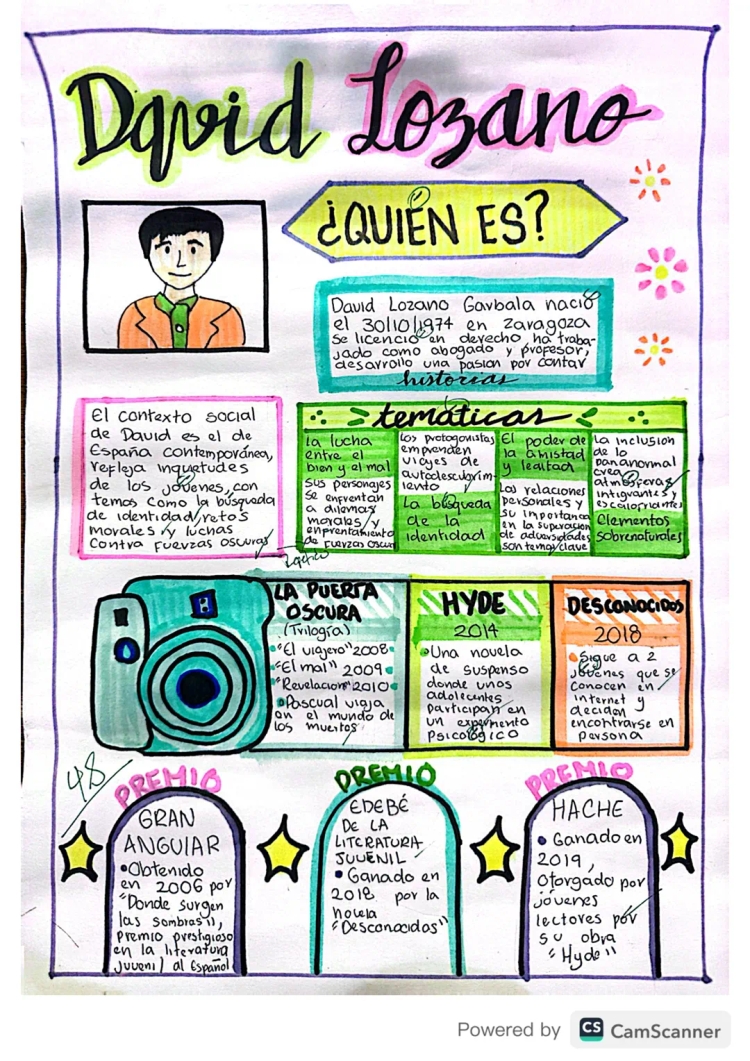 David Lozano
¿QUIÉN ES?
David Lozano Garbala nació
el 30/10/1974 en Zaragoza
Se licenció en derecho, ha traba-
jado como abogado y profesor,
desarrollo una pasion por contar
historias
El contexto social
de David es el de
España contemporánea,
refleja inquietudes
de los jóvenes, con
temas como la búsqueda
de identidad, retos
morales y luchas
contra fuerzas oscuras
temáticas
La lucha
entre el
bien y el mal
sus personajes
se enfrentan
a dilemas
morales y
enfrentamiento
de fuerzas oscu
Los protagonistas
emprenden
viajes de
autodescubrim-
iento
La búsqueda
de la
identidad
El poder de
la amistad
y lealtad
Las relaciones
personales y
su importancia
en la superación
de adversidades
son temas clave
La inclusion
de lo
paranormal
crea
atmósferas
intrigantes y
escalofriantes
Elementos
sobrenaturales
LA PUERTA
OSCURA
(Trilogía)
"El viajero" 2008
"El mal" 2009
"Revelacion" 2010
Pascual viaja
en el mundo de
los muertos
HYDE
2014
Una novela
de suspenso
donde unos
adolecentes
participan en
un experimento
psicológico
DESCONOCIDOS
2018
Sigue a 2
jóvenes que se
conocen en
internet y
deciden
encontrarse en
persona
48
PREMIO
GRAN
ANGULAR
Obtenido
en 2006 por
"Donde surgen
las sombras",
premio prestigioso
en la literatura
juvenil al Español
PREMIO
EDEBÉ
DE LA
LITERATURA
JUVENIL
Ganado en
2018 por la
novela
"Desconocidos"
PREMIO
HACHE
Ganado en
2019,
Otorgado por
jóvenes
lectores por
su obra
"Hyde"
Powered by CS CamScanner